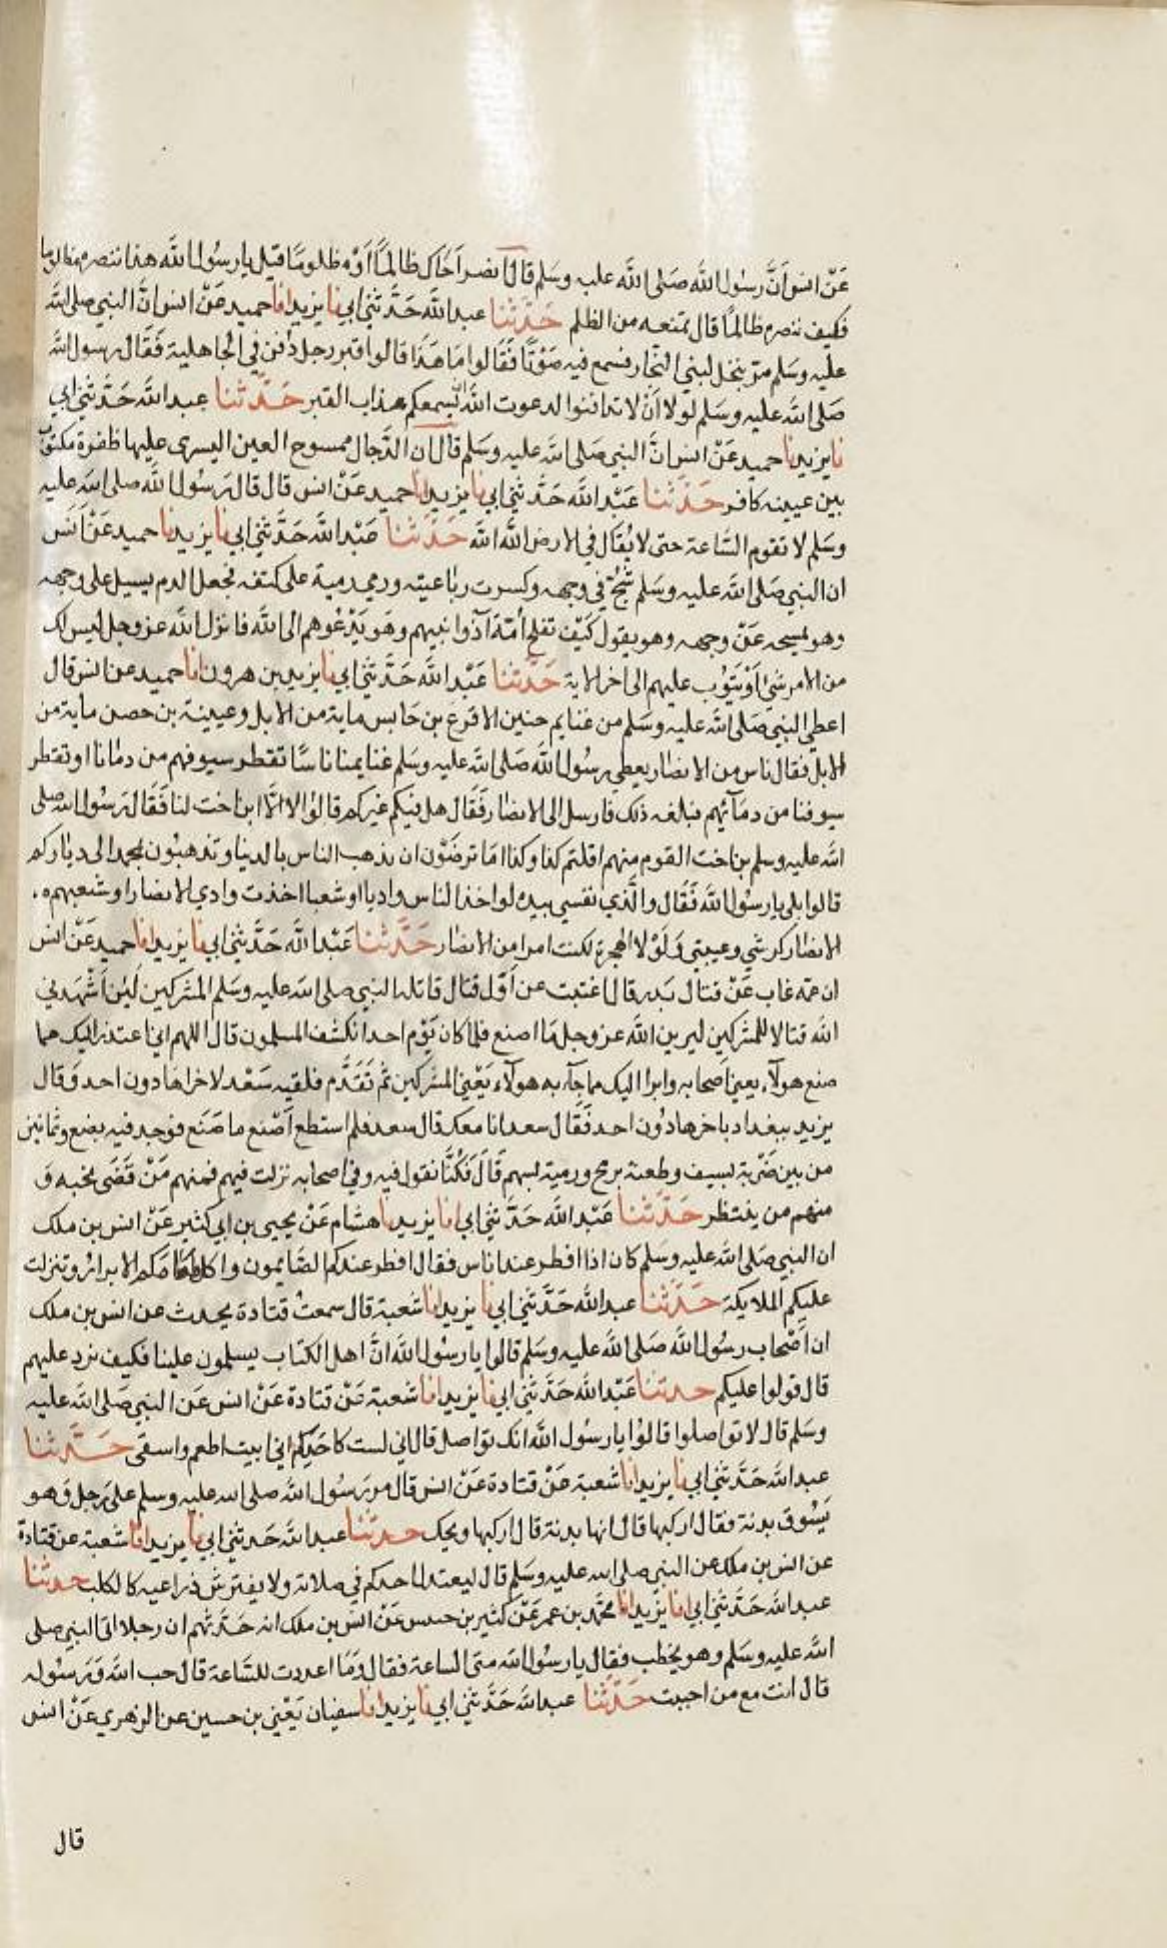 عَنْ انس اَنَّ رسُول الله صَلى الله عليه وسَلم قال انصر اَخَاك ظالمًا اَوْ مظلومًا قيل يا رسُول الله هذا ننصره مظلوما
فكيف ننصره ظالمًا قال تمنعه من الظلم حَدَّثنا عبد الله حَدَّثني ابي نا يزيد انا حميد عَنْ انس انَّ النبي صلى الله
عليه وسَلم مرّ بنخل لبني النجار فسمع فيه صَوْتًا فَقَالوا مَا هَذَا قالوا قبر رجل دُفن في الجاهلية فَقَال رسول الله
صَلى الله عليه وسَلم لولا اَنْ لا تدافنوا لدعوت الله يُسمعكم عذاب القبر حَدَّثنا عبد الله حَدَّثني ابي
نا يزيد نا حميد عَنْ انس انَّ النبي صَلى الله عليه وسَلم قال ان الدَّجال ممسوح العين اليسرى عليها ظفرة مكتوب
بين عينيه كافر حَدَّثنا عَبْد الله حَدَّثني ابي نا يزيد انا حميد عَنْ انس قال قال رَسُول الله صلى الله عليه
وسَلم لا تقوم السَّاعة حتى لا يُقال في الارض الله الله حَدَّثنا عَبْد الله حَدَّثني ابي نا يزيد نا حميد عَنْ اَنَس
ان النبي صَلى الله عليه وسَلم شُجَّ في وجهه وكسرت رباعيته ورمي رمية على كتفه فجعل الدم يسيل على وجهه
وهو يمسحه عَنْ وجهه وهو يقول كَيْفَ تفلح اُمّة آذَوا نبيهم وهَو يَدْعُوهم الى الله فانزل الله عز وجل ليس لك
من الامر شيْ اوْ يتوُب عليهم الى اخر الاية حَدَّثنا عَبْد الله حَدَّثني ابي نا يزيد بن هرون انا حميد عن انس قال
اعطى النبي صَلى الله عليه وسَلم من غنايم حنين الاقرع بن حَابس ماية من الابل وعيينة بن حصن ماية من
الابل فقال ناس من الانصار يعطي رسُول الله صَلى الله عليه وسَلم غنايمنا ناسًا تقطر سيوفهم من دمانا او تقطر
سيوفنا من دمَآئهم فبلغه ذلك فارسل الى الانصار فَقَال هل فيكم غيركم قالوُا لا الّا ابن اخت لنا فَقَال رَسُول الله صلى
الله عليه وسلم بن اخت القوم منهم اقلتم كذا وكذا امَا ترضَوْن ان يذهب الناس بالدنيا وتذهبُون بمحمد الى دياركم
قالوا بلى يا رسُول الله فَقَال والَّذي نفسي بيده لو اخذ الناس واديا او شعبا اخذت وادي الانصار او شعبهم
الانصار كرشي وعيبتي وَلَوْلا الهجرة لكنت امرا من الانصار حَدَّثنا عَبْد الله حَدَّثني ابي نا يزيد انا حميد عَنْ انس
ان عمّه غاب عَنْ قتال بَدر قال غبت عن اَوّل قتال قاتله النبي صلى الله عليه وسَلم المشركين لَئن اَشْهَدني
الله قتالا للمشركين ليرين الله عز وجل مَا اصنع فلما كان يَوْم احد انكشف المسلمون قال اللهم اني اعتذر اليك مما
صنع هولآء يعني اَصحابه وابرا اليك مما جآء به هولآء يَعْني المشركين ثم تَقَدَّم فلقيه سَعْد لاخراها دون احد وَقال
يزيد ببغداد باخرها دُون احد فَقَال سعد انا معك قال سعد فلم استطع اَصْنَع ما صَنَع فوجد فيه بضع وثمانين
من بين ضَرْبة بسيف وطعنة برمح ورمية بسهم قَالَ فَكُنَّا نقول فيه وفي اصحابه نزلت فيهم فمنهم مَنْ قَضَى نحبه وَ
منهم من ينتظر حَدَّثنا عَبْد الله حَدَّثني ابي انا يزيد نا هشام عَنْ يحيى بن ابي كثير عَنْ انس بن ملك
ان النبي صَلى الله عليه وسَلم كان اذا افطر عند اناس فقال افطر عندكم الصَّايمون واكل طعَامَكم الابرار وتنزلت
عليكم الملايكة حَدَّثنا عبد الله حَدَّثني ابي نا يزيد انا شعبة قال سمعتُ قتادة يحدث عن انس بن ملك
ان اَصْحاب رسُول الله صَلى الله عليه وسَلم قالوا يا رسُول الله انَّ اهل الكتاب يسلمون علينا فكيف نرد عليهم
قال قولوا عليكم حدثنا عَبْد الله حَدَّثني ابي نا يزيد انا شعبة عَنْ قتادة عَنْ انس عَن النبي صَلى الله عليه
وسَلم قال لا تواصلوا قالوُا يا رسُول الله انك تواصل قال اني لست كاحَدِكم اني ابيت اطعم واسقى حَدَّثنا
عبد الله حَدَّثني ابي نا يزيد انا شعبة عَنْ قتادة عَنْ انس قال مر رَسُول الله صلى الله عليه وسلم على رَجل وَهو
يَسُوق بدنة فقال اركبها قال انها بدنة قال اركبها ويحك حدثنا عبد الله حَدثني ابي نا يزيد انا شعبة عن قتادة
عن انس بن ملك عن النبي صلى الله عليه وسَلم قال ليعتدل احدكم في صلاته ولا يفترشْ ذراعيه كالكلب حدثنا
عبد الله حَدَّثني ابي انا يزيد انا محمّد بن عمر عَنْ كثير بن خنيس عَنْ انس بن ملك انه حَدَّثهم ان رجلا اتى النبي صلى
الله عليه وسَلم وهو يخطب فقال يا رسُول الله متى الساعة فقال وَمَا اعددت للسَّاعة قال حب الله وَرَسُوله
قال انت مع من احببت حَدَّثنا عبد الله حَدَّثني ابي نا يزيد انا سفيان يَعْني بن حسين عن الزهري عَنْ انس
قال